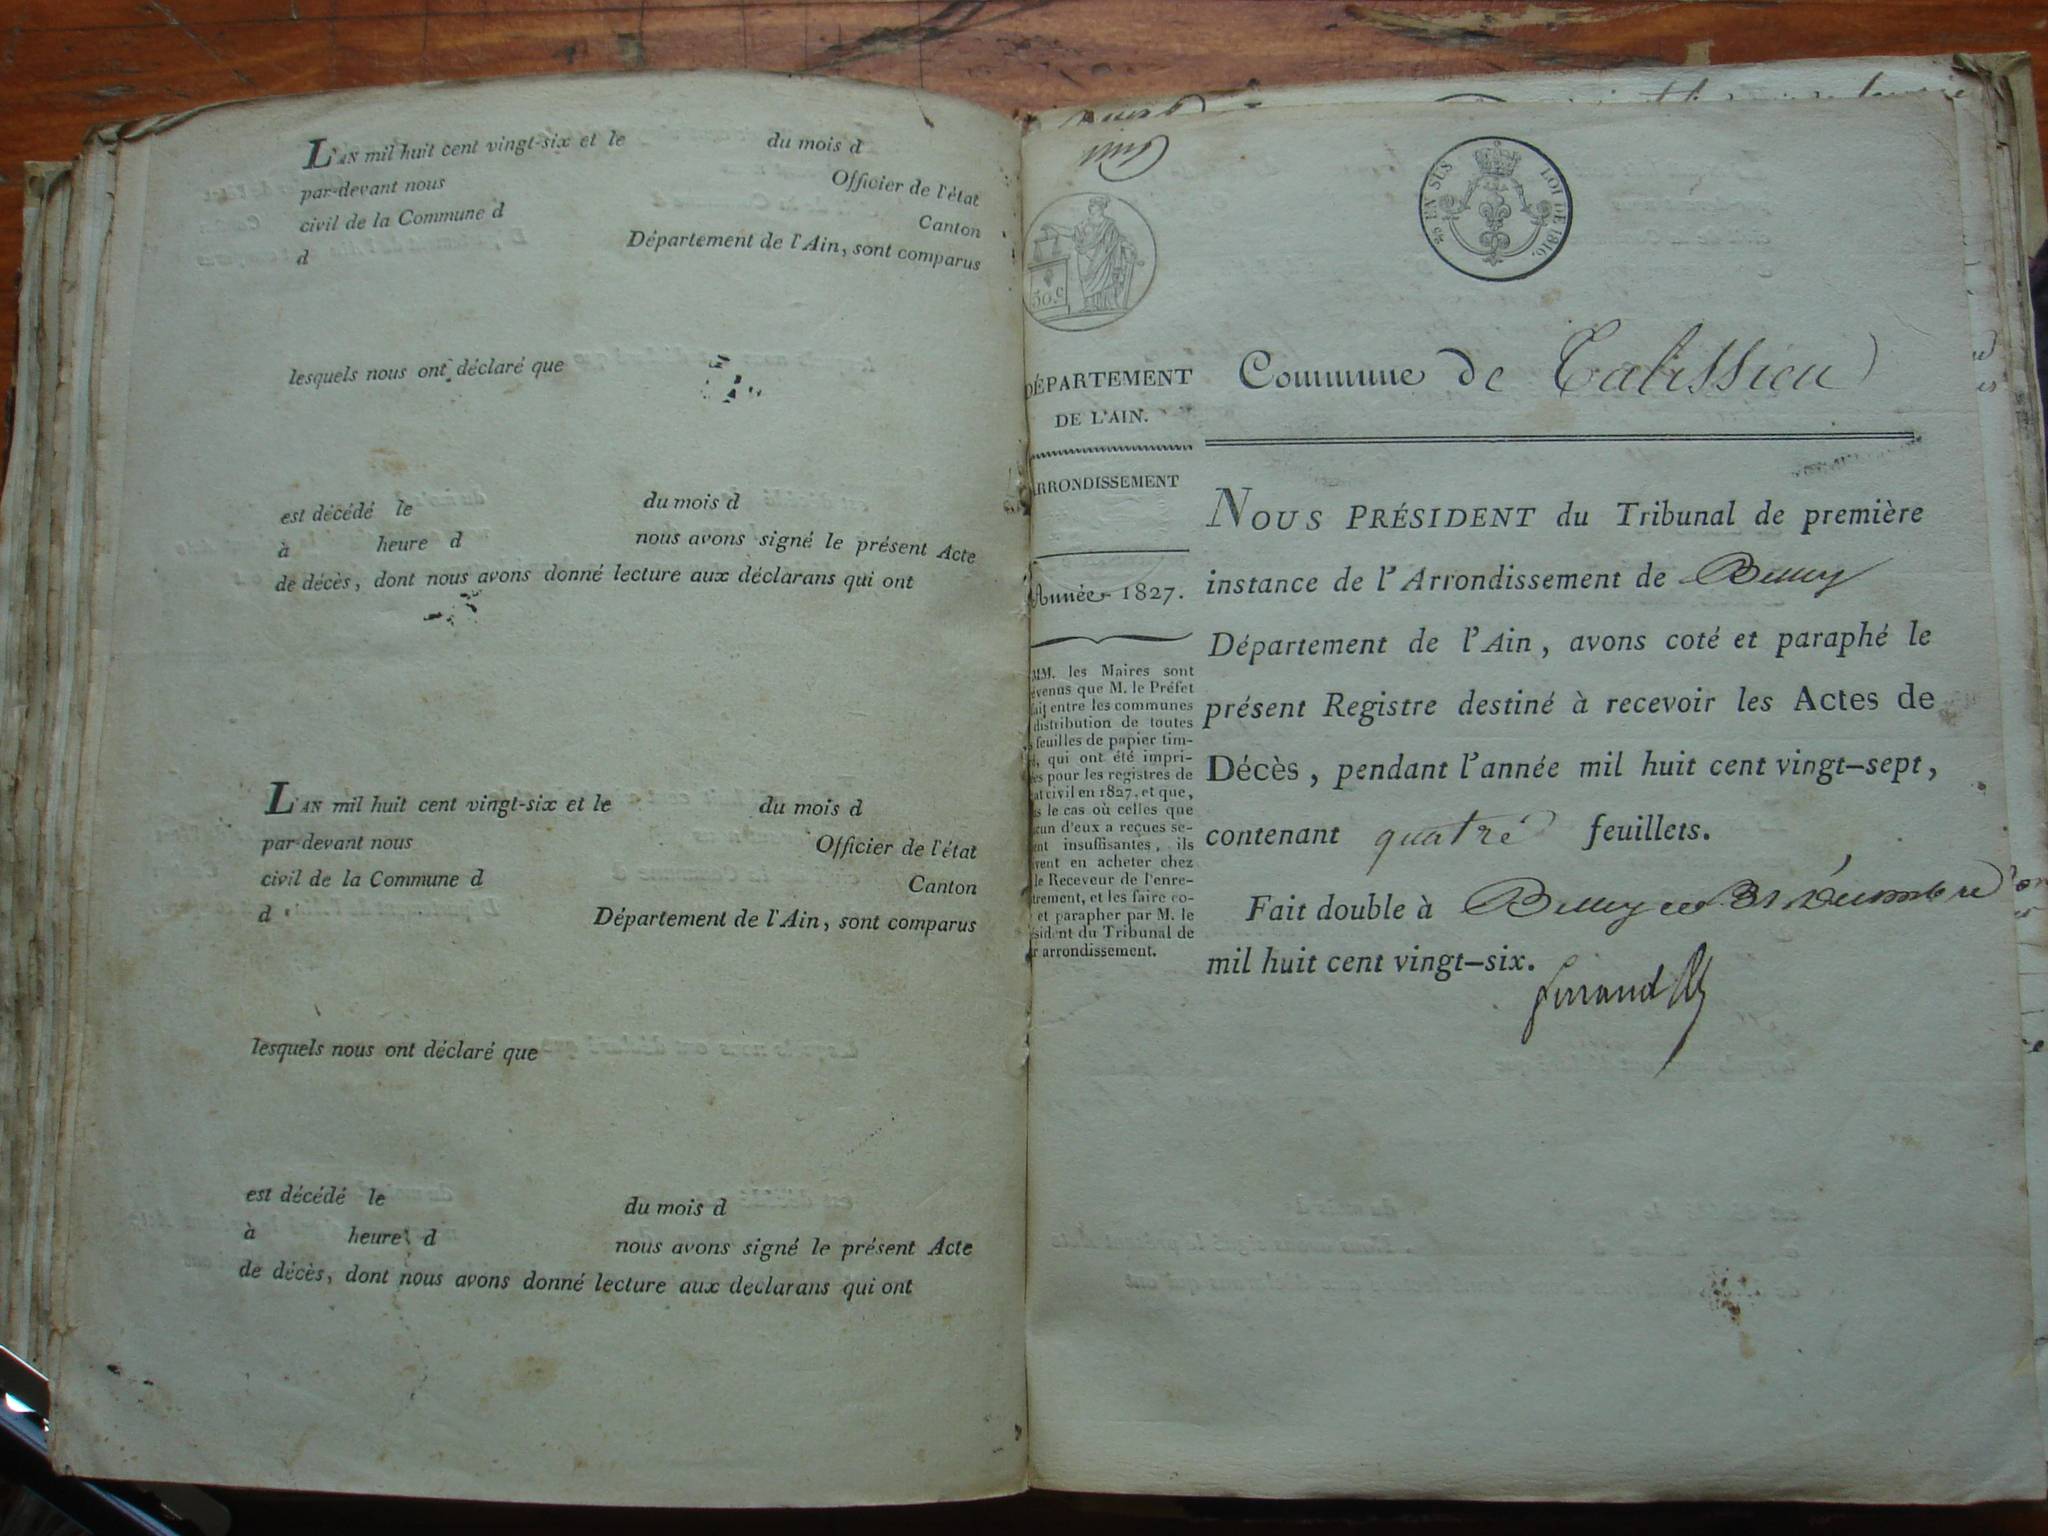 L'AN mil huit cent vingt-six et le du mois d
par-devant nous Officier de l'état
civil de la Commune d Canton
d Département de l'Ain, sont comparus
lesquels nous ont déclaré que
est décédé le du mois d
à heure d nous avons signé le présent Acte
de décès, dont nous avons donné lecture aux déclarans qui ont
L'AN mil huit cent vingt-six et le du mois d
par-devant nous Officier de l'état
civil de la Commune d Canton
d Département de l'Ain, sont comparus
lesquels nous ont déclaré que
est décédé le du mois d
à heure d nous avons signé le présent Acte
de décès, dont nous avons donné lecture aux declarans qui ont
30.c
EN SUS LOI DE 1816.
DÉPARTEMENT
DE L'AIN.
ARRONDISSEMENT
Année 1827.
MM. les Maires sont
que M. le Préfet
entre les communes
distribution de toutes
feuilles de papier tim-
qui ont été impri-
pour les registres de
civil en 1827, et que,
le cas où celles que
d'eux a reçues se-
insuffisantes, ils
en acheter chez
le Receveur de l'enre-
et les faire co-
et parapher par M. le
du Tribunal de
arrondissement.
Commune de Talissieu
NOUS PRÉSIDENT du Tribunal de première
instance de l'Arrondissement de Belley
Département de l'Ain, avons coté et paraphé le
présent Registre destiné à recevoir les Actes de
Décès, pendant l'année mil huit cent vingt-sept,
contenant quatre feuillets.
Fait double à Belley ce 31 Décembre
mil huit cent vingt-six.